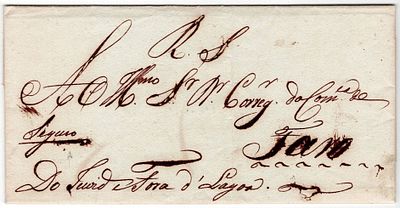 R S
A O Ill.mo Sr. Dr. Correg.r da Com.ca de
Seguro
Faro
Do Juiz de Fora d'Lagoa.